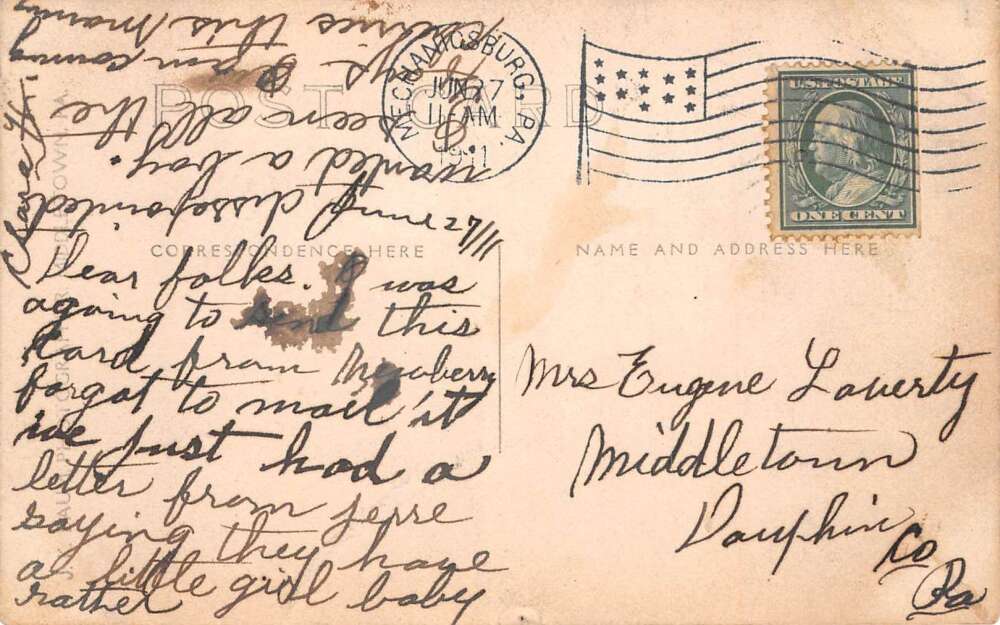 POST CARD
MECHANICSBURG, PA.
JUN 27
11 AM
1911
U.S. POSTAGE
ONE CENT
CORRESPONDENCE HERE
NAME AND ADDRESS HERE
June 27/11
Dear folks. I was
agoing to send this
Card from Newberry
forgot to mail it
we just had a
letter from Jerre
saying they have
a little girl baby
rather
dissepointed
wanted a boy.
been all the
days. Am coming
this morning
Clara
Mrs Eugene Laverty
Middletown
Dauphin
Co
Pa